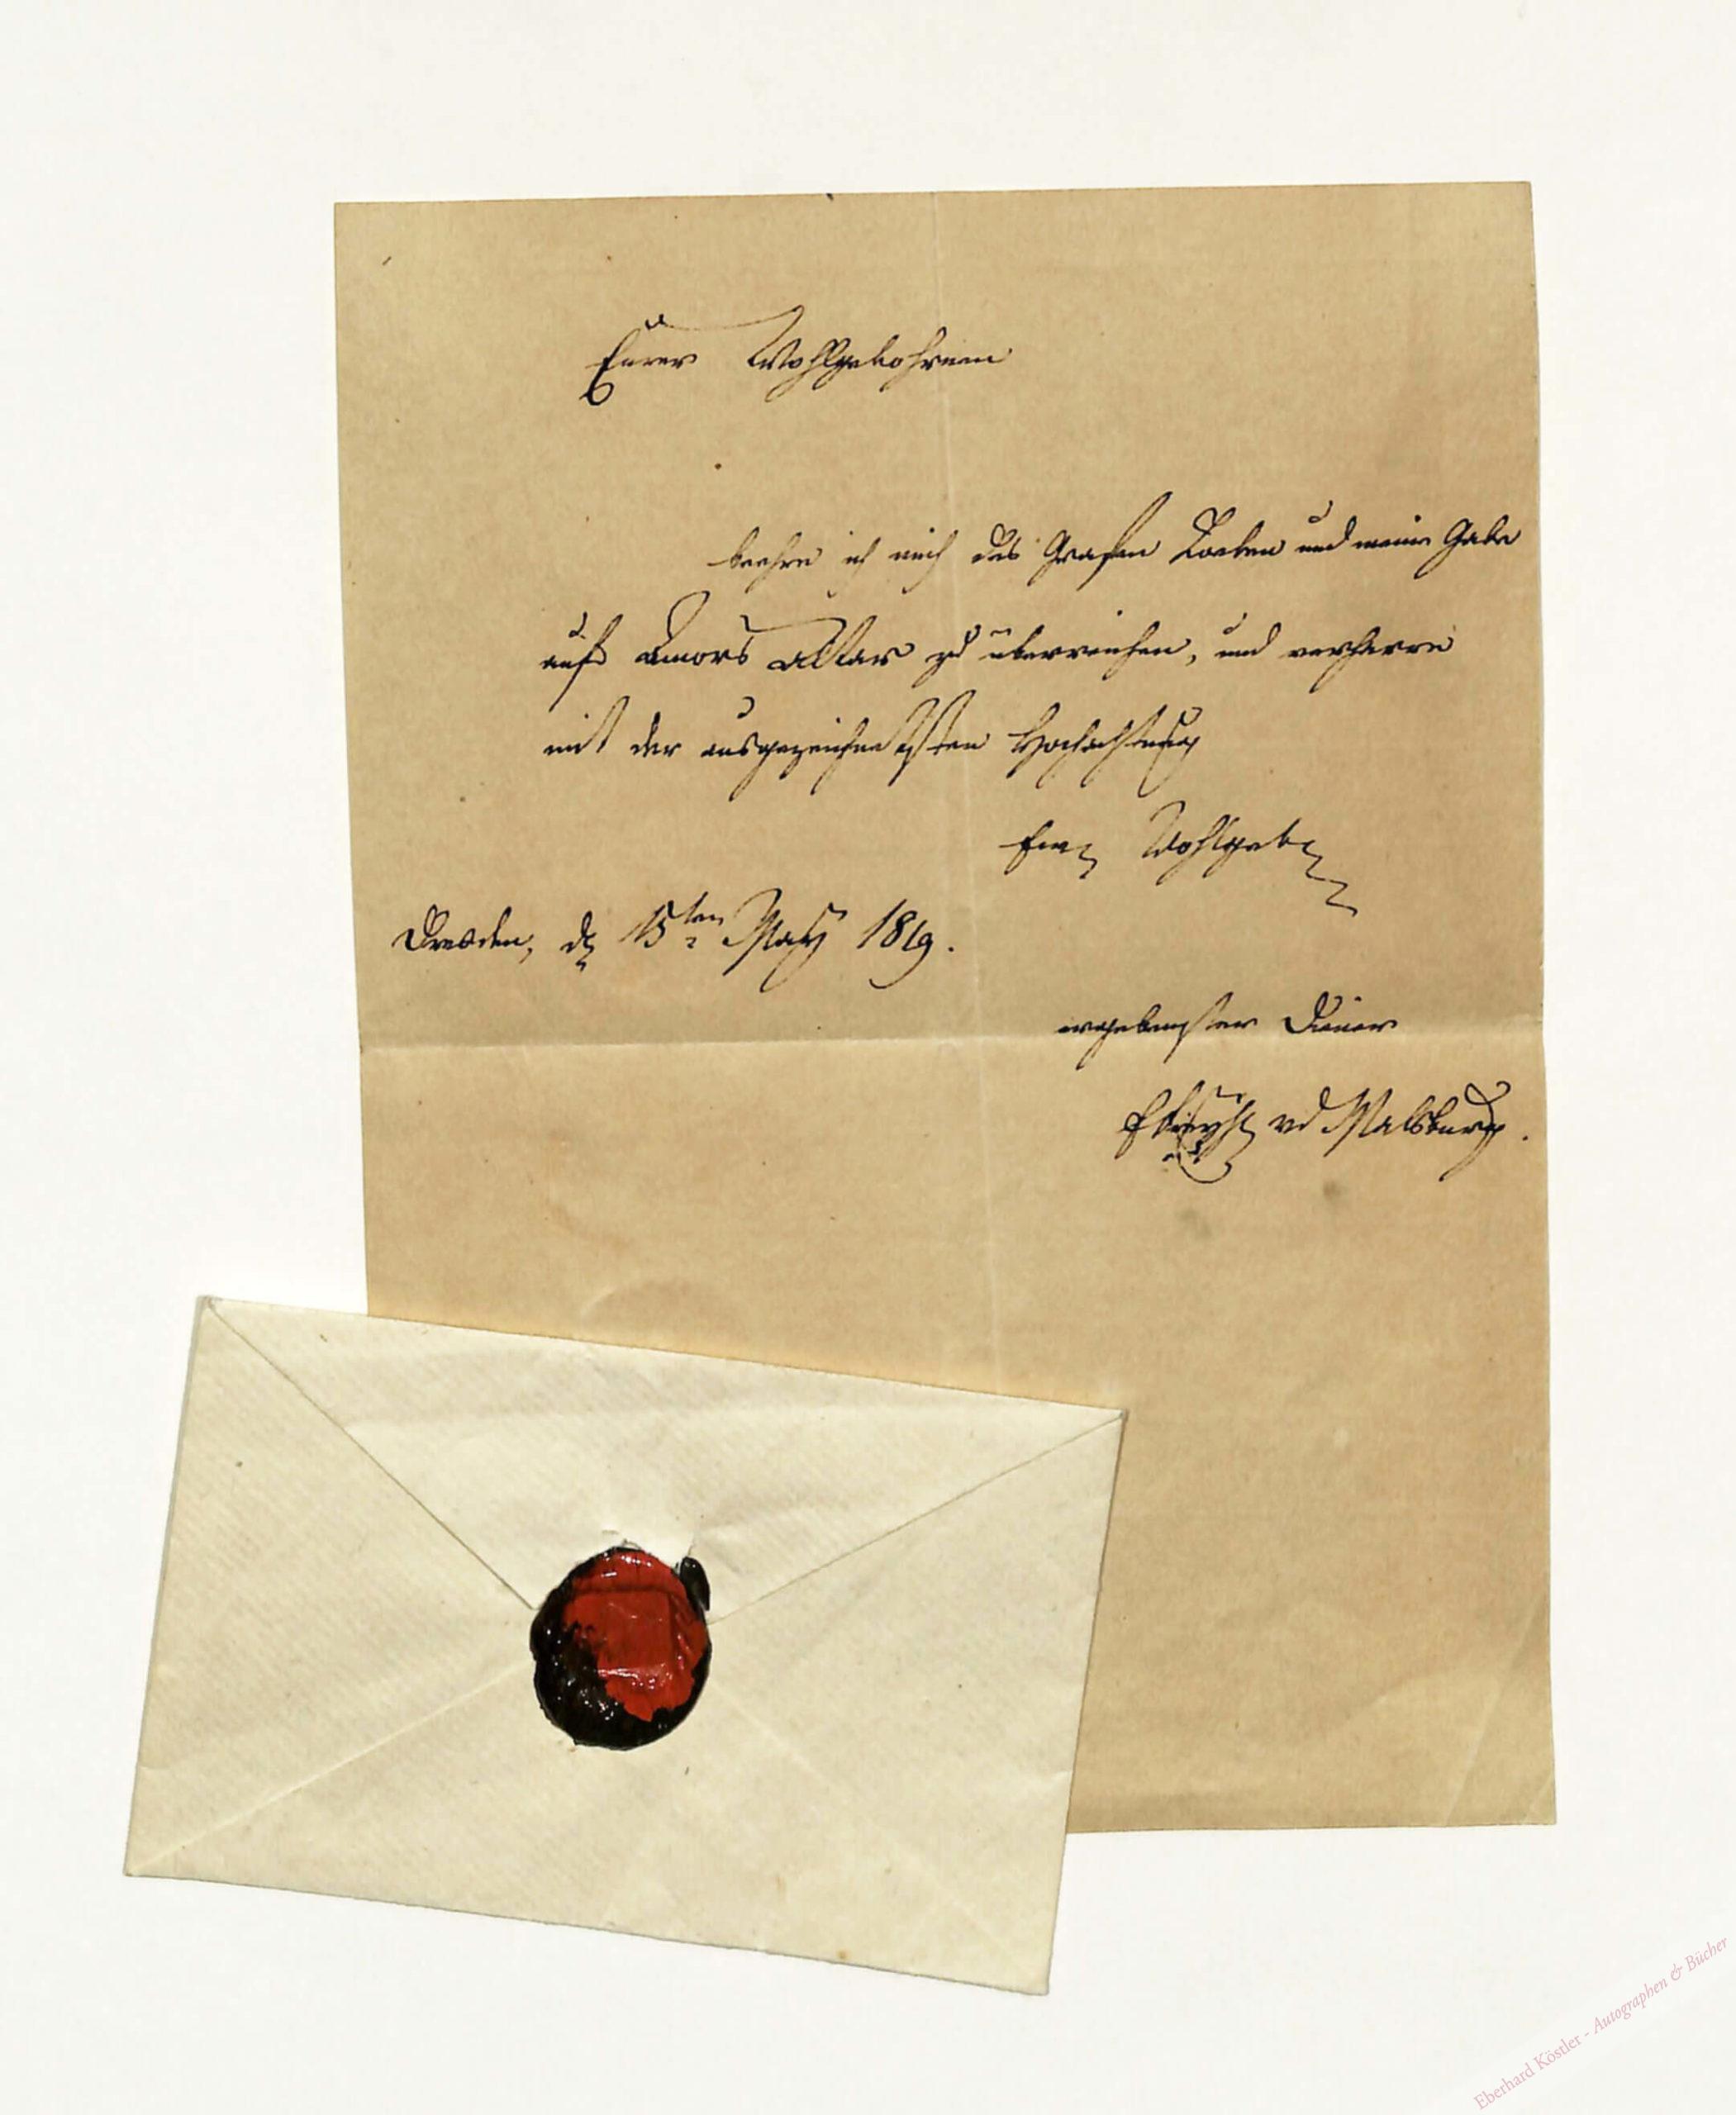 Eurer Wohlgebohrnen
beehre ich mich des Grafen Loeben und meine Gabe
auf Amors Altar zu überreichen, und verharre
mit der ausgezeichnetsten Hochachtung
Eur Wohlgeb
Dresden, d 15ten May 1819.
ergebenster Diener
vd Malsburg.
Eberhard Köstler - Autographen & Bücher